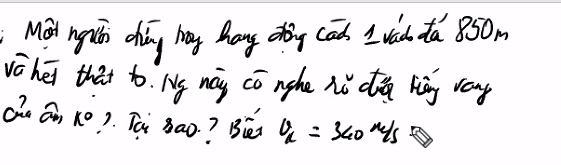 : Một người đứng trog hang động cách 1 vách đá 850m
và hét thật to. Ng này có nghe rõ được tiếng vang
của âm ko? Tại sao? Biết Vk = 340 m/s